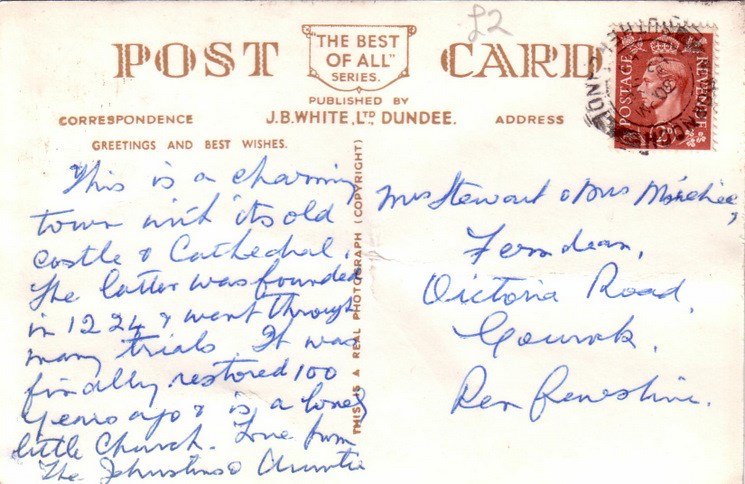 £2
POST CARD
"THE BEST
OF ALL"
SERIES.
PUBLISHED BY
J.B. WHITE, LTD DUNDEE.
CORRESPONDENCE
ADDRESS
GREETINGS AND BEST WISHES.
This is a charming
town with its old
castle & Cathedral.
The latter was founded
in 1224 & went through
many trials. It was
finally restored 100
years ago & is a lovely
little Church. Love from
The Johnstons & Auntie
THIS IS A REAL PHOTOGRAPH (COPYRIGHT)
Mrs Stewart & Mrs
Ferndean,
Victoria Road,
Gourock,
Renfrewshire.
POSTAGE
REVENUE